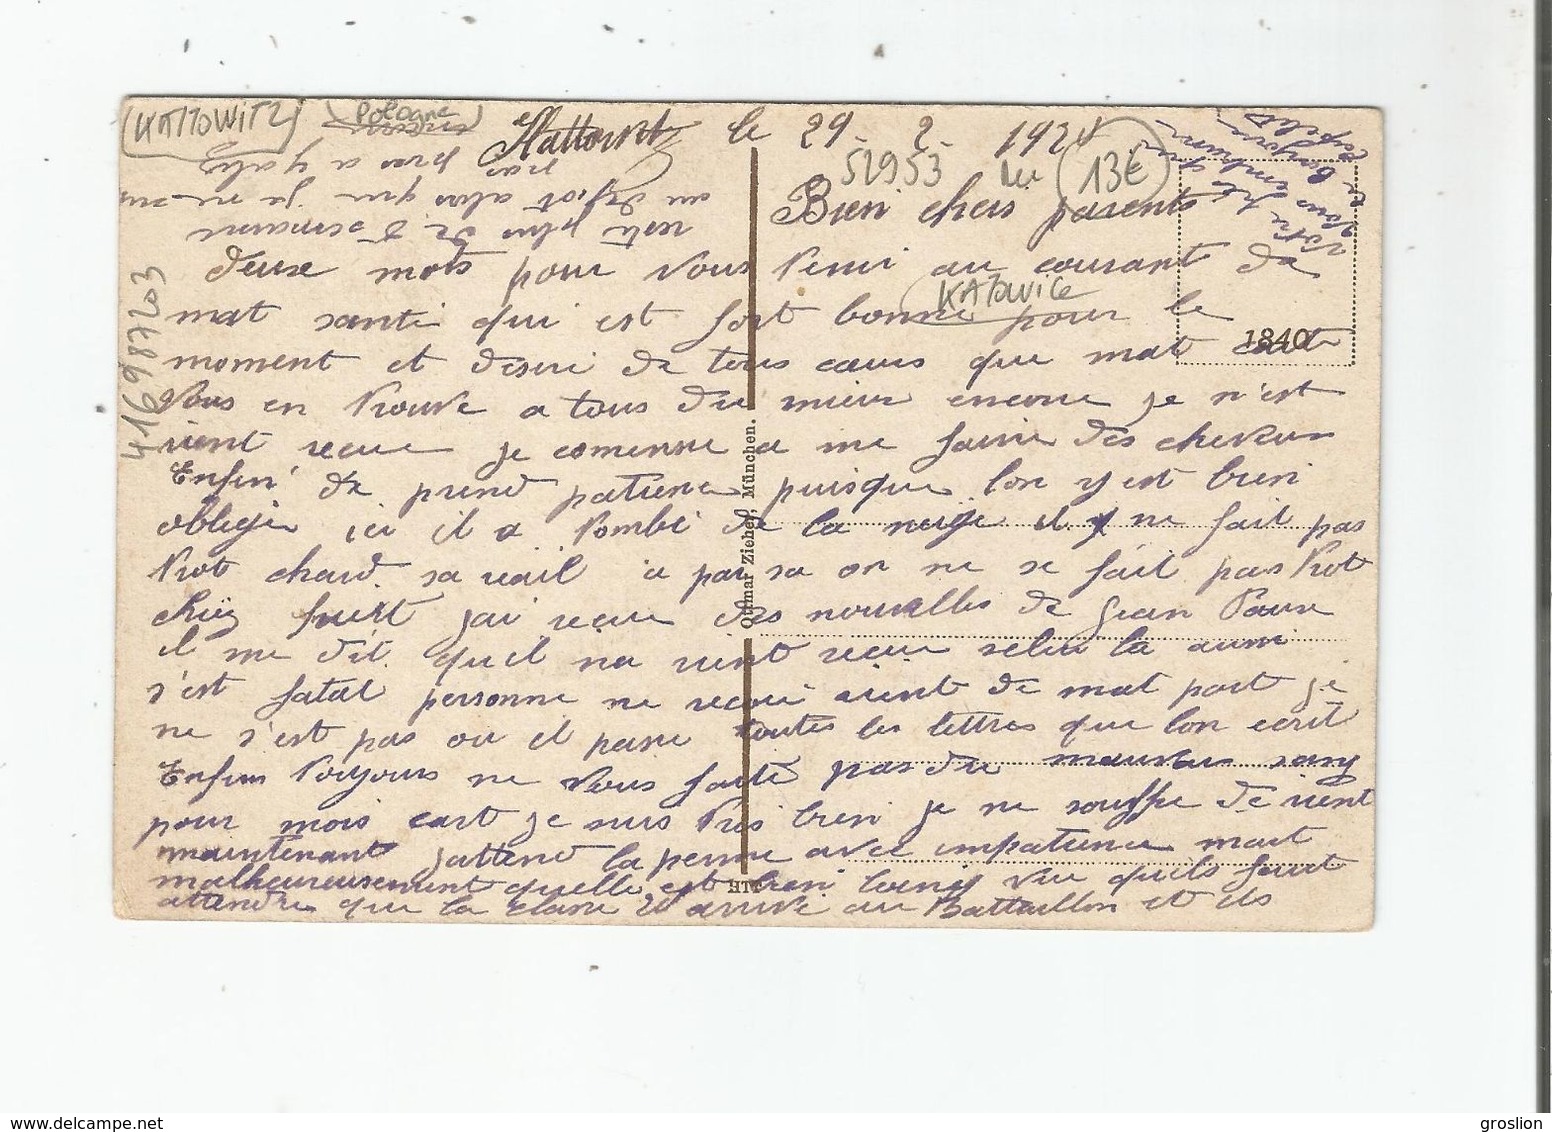 KATTOWITZ
Pologne
Kattowitz le 29 2 192
52953
13€
Bien chers parents
deuse mots pour vous tenir au courant de
KATOWICE
mat santé qui est fort bonne pour le
1840
moment et desire de tous cœurs que mat carte
Vous en trouve a tous de mieux encore je n'est
rient recue je comence a me faire des cheveux
Enfin de prend patience puisque lon y est bien
obligé ici il a tombé de la neige il y ne fait pas
trot chaud sa vail a par sa on ne se fait pas trot
chiez j'ai recue des nouvelles de Jean
il me dit quil na rient recue
s'est fatal personne ne recoi rient de mat part je
ne s'est pas ou il passe toutes les lettres que lon ecrit
Enfin toujours ne vous faite pas du mauvais sang
pour mois cart je suis très bien je ne souffre de rient
maintenant j'attend la perme avec impatience mart
malheureusement quelle est bien loing vue quils faut
attendre que la classe 20 arrive au Bataillon et ils
sont plus de d'environ
au depot alors que ja ne
pas a
Vous embrasse
4169 87203
Ottmar Zieher, München.